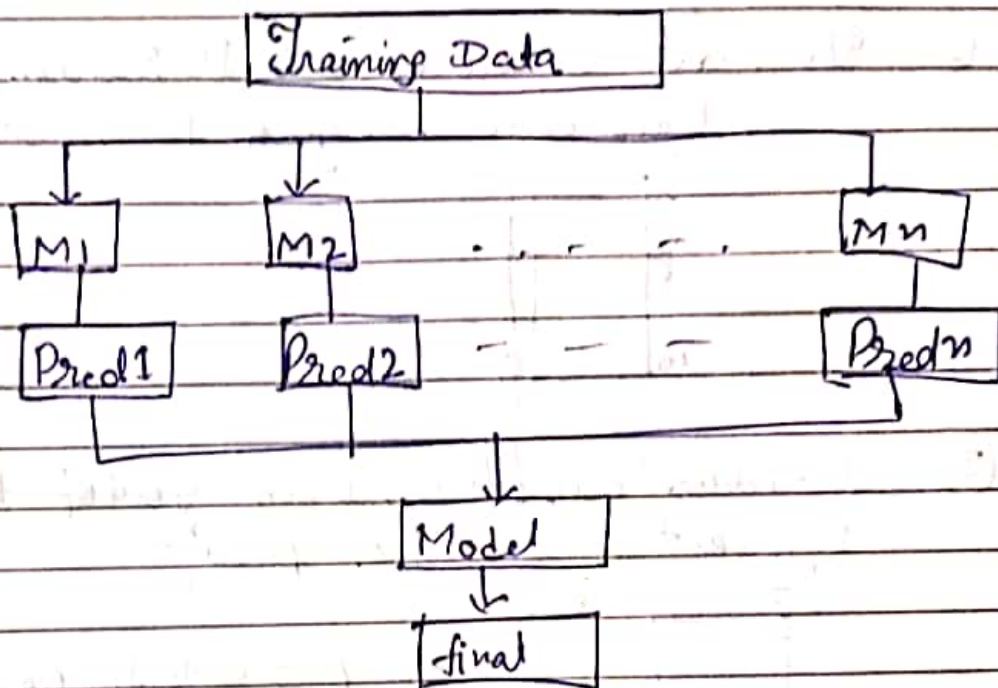 Training Data
M1 M2 Mn
Pred1 Pred2 Predn
Model
final